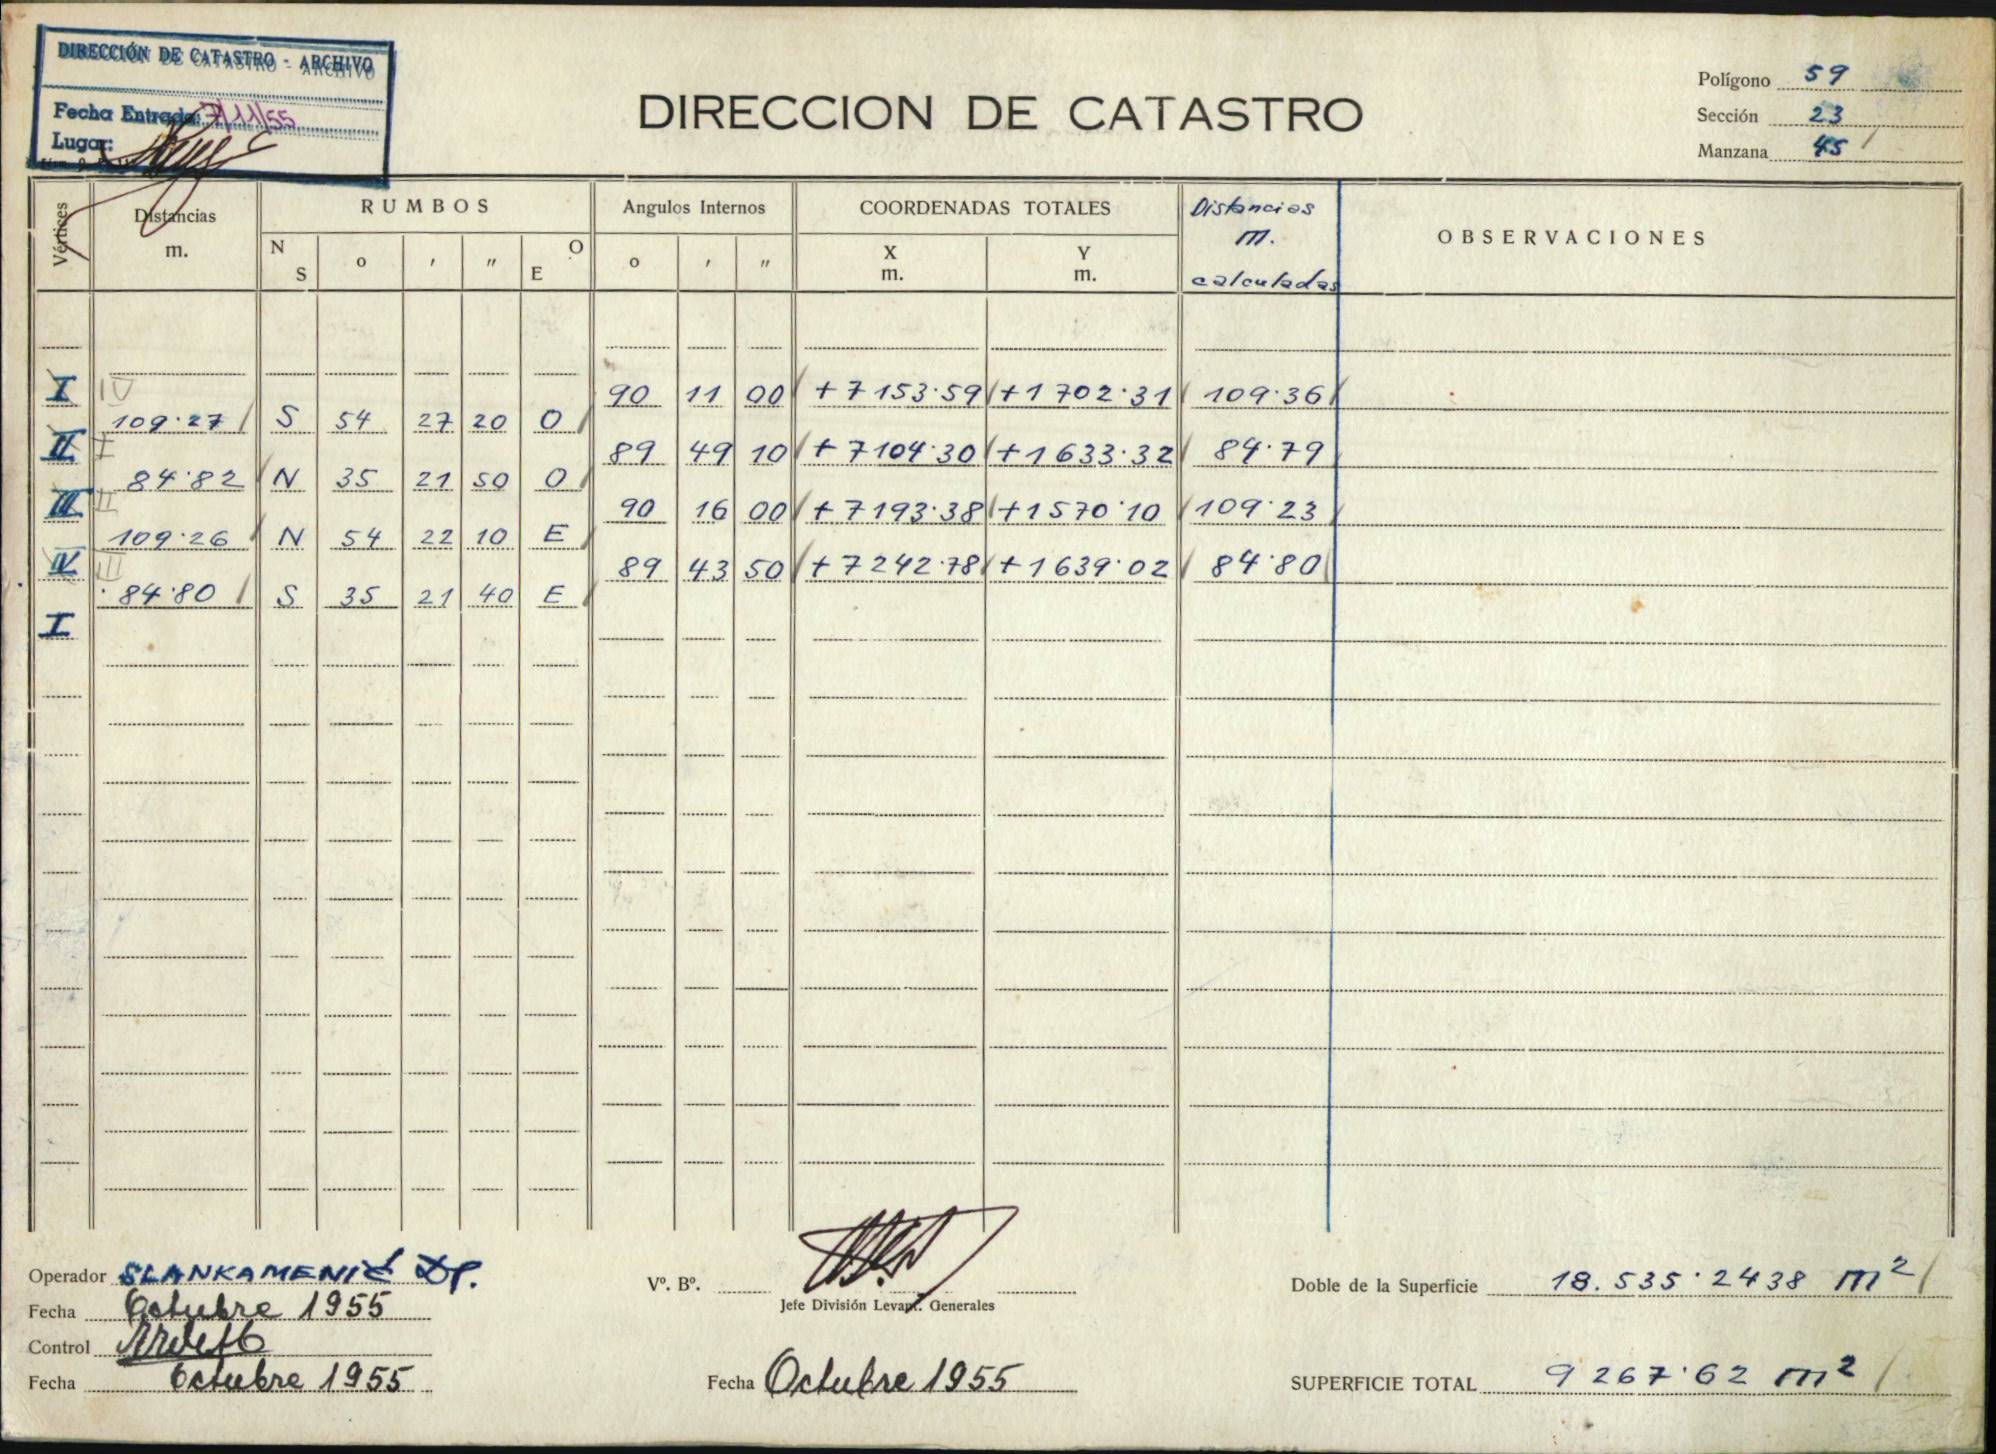 DIRECCIÓN DE CATASTRO - ARCHIVO
Fecha Entrada: 7/11/55
Lugar:
DIRECCION DE CATASTRO
Polígono 59
Sección 23
Manzana 45
Vértices Distancias m. RUMBOS Angulos Internos COORDENADAS TOTALES Distancias m. calculadas OBSERVACIONES
N S o ' " O E o ' " X m. Y m.
I IV 90 11 00 +7153.59 +1702.31 109.36
109.27 S 54 27 20 O
II I 89 49 10 +7104.30 +1633.32 84.79
84.82 N 35 21 50 O
III II 90 16 00 +7193.38 +1570.10 109.23
109.26 N 54 22 10 E
IV III 89 43 50 +7242.78 +1639.02 84.80
84.80 S 35 21 40 E
I
Operador SLANKAMENIĆ Dr.
Fecha Octubre 1955
Control
Fecha Octubre 1955
Vº. Bº.
Jefe División Levant. Generales
Fecha Octubre 1955
Doble de la Superficie 18.535.2438 m²
SUPERFICIE TOTAL 9267.62 m²